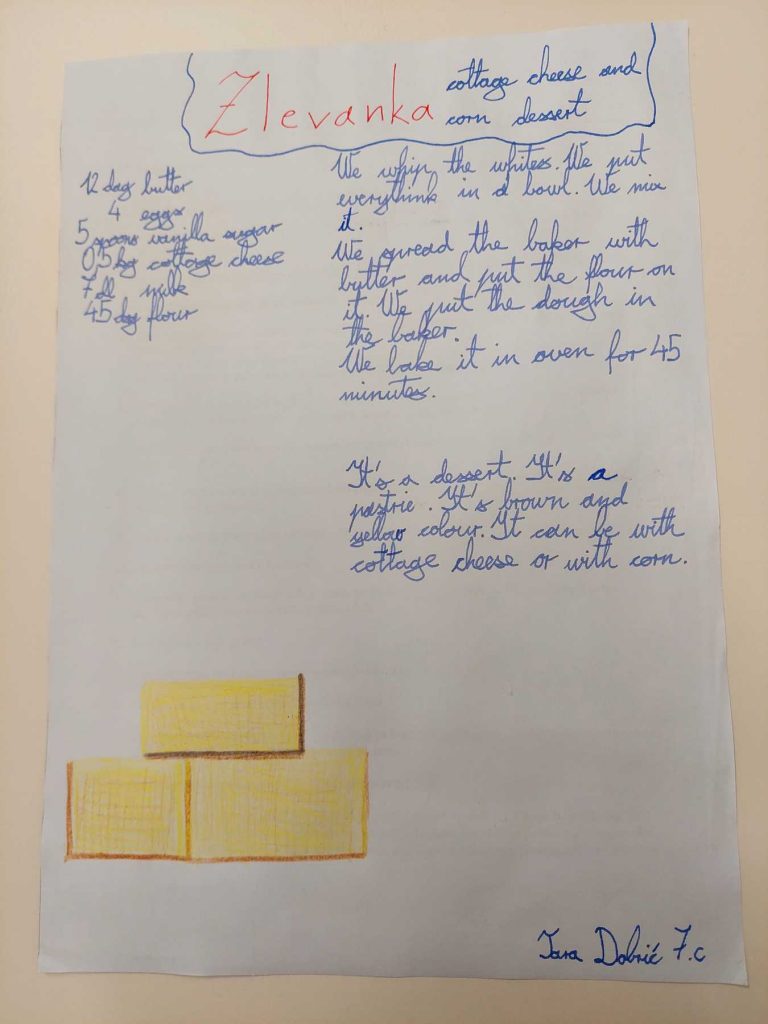 Zlevanka
cottage cheese and
corn dessert
12 dag butter
4 eggs
5 spoons vanilla sugar
0'5 kg cottage cheese
7 dl milk
45 dag flour
We whip the whites. We put
everythink in a bowl. We mix
it.
We spread the baker with
butter and put the flour on
it. We put the dough in
the baker.
We bake it in oven for 45
minutes.
It's a dessert. It's a
pastrie. It's brown and
yellow colour. It can be with
cottage cheese or with corn.
Tara Dobrić 7.c